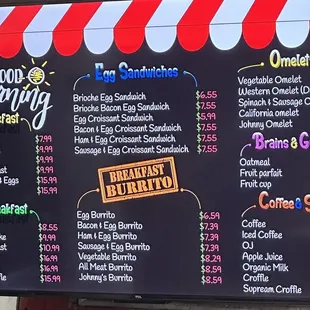 OOD
rning
kfast
$7.99
$9.99
$9.99
$9.99
& Eggs
$15.99
$15.99
eakfast
$8.55
ke
$9.99
st
$10.99
$16.99
$16.99
offle
$15.99
Egg Sandwiches
Brioche Egg Sandwich
$6.55
Brioche Bacon Egg Sandwich
$7.55
Egg Croissant Sandwich
$5.99
Bacon & Egg Croissant Sandwich
$7.55
Ham & Egg Croissant Sandwich
$7.55
Sausage & Egg Croissant Sandwich
$7.55
BREAKFAST
BURRITO
Egg Burrito
$6.59
Bacon & Egg Burrito
$7.39
Ham & Egg Burrito
$7.39
Sausage & Egg Burrito
$7.39
Vegetable Burrito
$8.29
All Meat Burrito
$8.59
Johnny's Burrito
$8.59
Omelet
Vegetable Omelet
Western Omelet (D
Spinach & Sausage O
California omelet
Johnny Omelet
Brains & G
Oatmeal
Fruit parfait
Fruit cup
Coffee & S
Coffee
Iced Coffee
OJ
Apple Juice
Organic Milk
Croffle
Supream Croffle